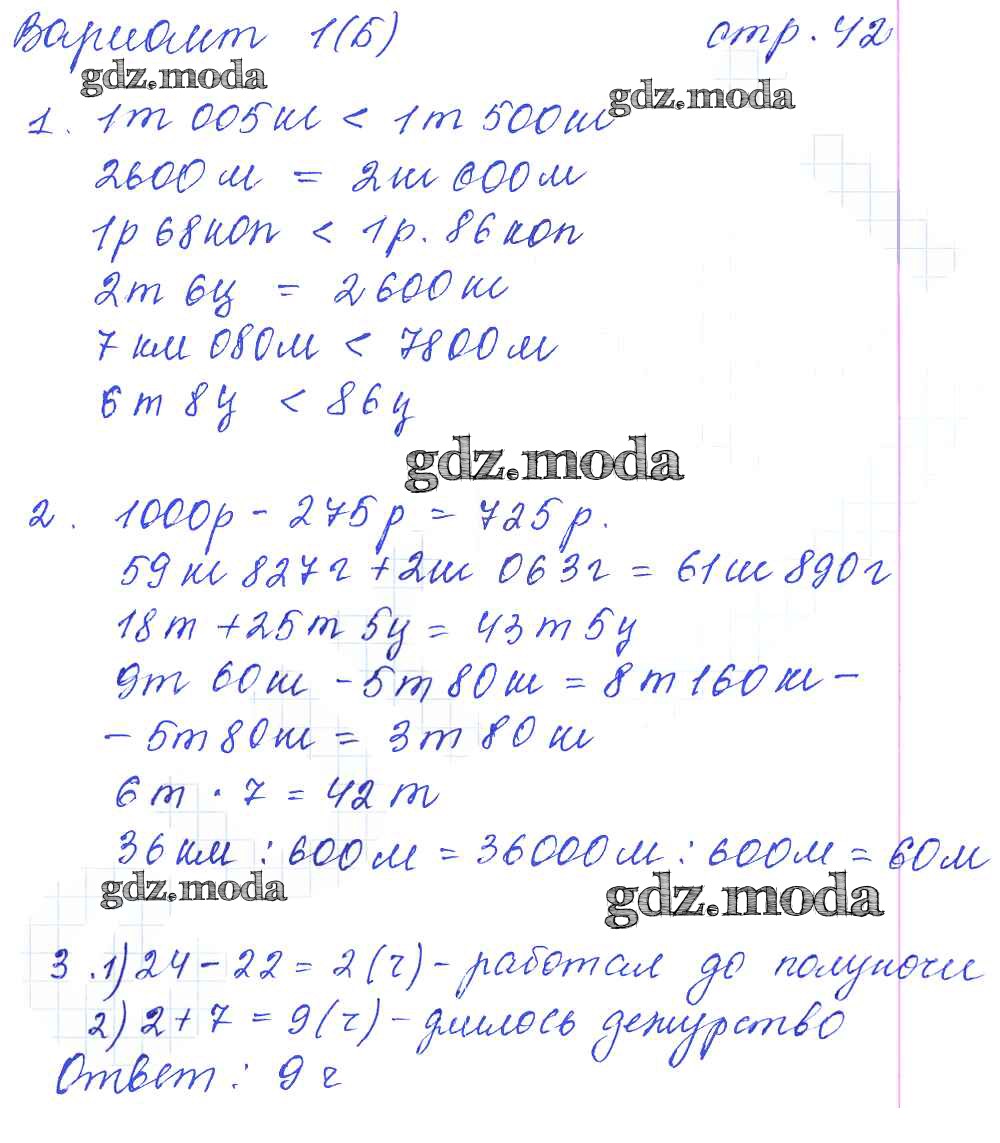 Вариант 1(Б) стр. 42
gdz.moda
gdz.moda
1. 1т 005кг < 1т 500кг
2600м = 2км 600м
1р 68коп < 1р. 86коп
2т 6ц = 2600кг
7км 080м < 7800м
6т 8ц < 86ц
gdz.moda
2. 1000р - 275р = 725р.
59кг 827г + 2кг 063г = 61кг 890г
18т + 25т 5ц = 43т 5ц
9т 60кг - 5т 80кг = 8т 160кг -
- 5т 80кг = 3т 80кг
6т · 7 = 42т
36км : 600м = 36000м : 600м = 60м
gdz.moda
gdz.moda
3. 1) 24 - 22 = 2 (ч) - работал до полуночи
2) 2 + 7 = 9 (ч) - длилось дежурство
Ответ: 9ч